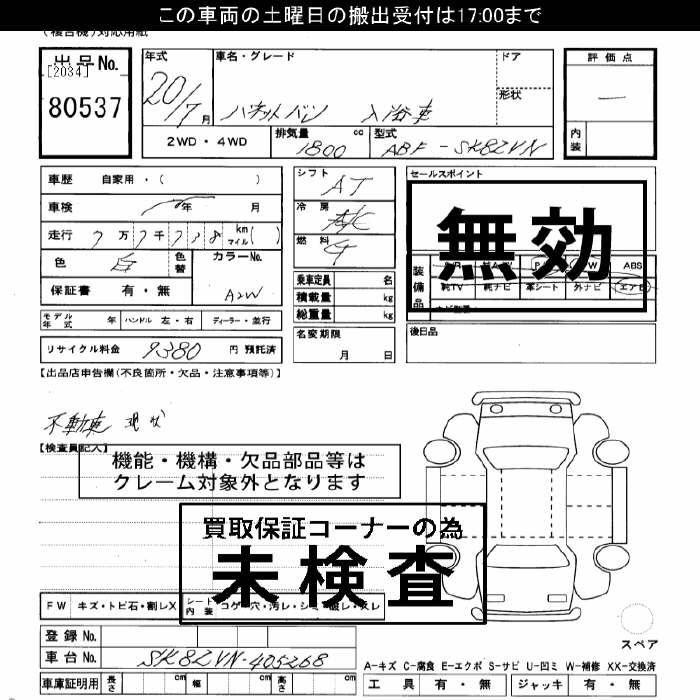 この車両の土曜日の搬出受付は17:00まで
(複合機)対応用紙
出品No.
[2034]
80537
年式
20/7月
車名・グレード
バネットバン 入浴車
ドア
形状
2WD・4WD
排気量
1800
cc
型式
ABF-SK82VN
評価点
内装
車歴 自家用・( )
車検 年 月
走行 7万7千 km マイル( )
色 白
色替
カラーNo.
A2W
保証書 有・無
モデル年式 年
ハンドル 左・右
ディーラー・並行
リサイクル料金 9380 円 預託済
シフト AT
冷房 A/C
燃料 G
乗車定員 名
積載量 kg
総重量 kg
名変期限
月 日
セールスポイント
無効
装備品
ABS
純TV 純ナビ 革シート 外ナビ エアB
後日品
【出品店申告欄(不良箇所・欠品・注意事項等)】
不動車 現状
【検査員記入】
機能・機構・欠品部品等は
クレーム対象外となります
買取保証コーナーの為
未検査
FW
キズ・トビ石・割レX
シート内装
コゲ・穴・汚レ・シミ・破レ・スレ
登録No.
車台No. SK82VN-405268
車庫証明用
長さ cm
幅 cm
高さ cm
スペア
A-キズ C-腐食 E-エクボ S-サビ U-凹ミ W-補修 XX-交換済
工具 有・無
ジャッキ 有・無